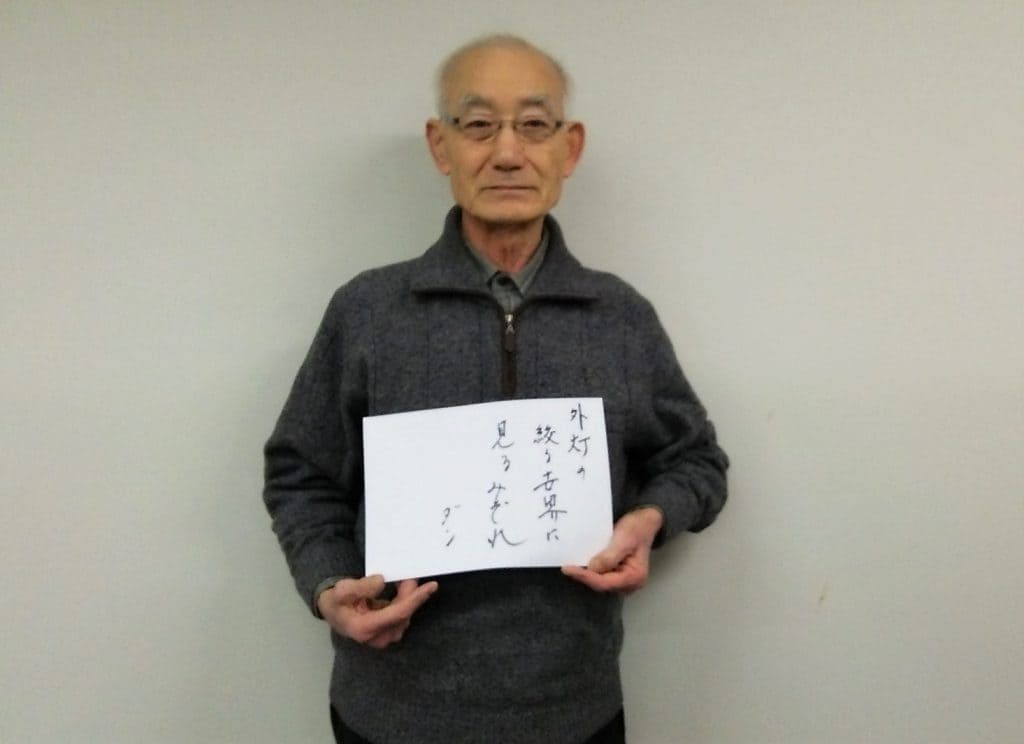 外灯の
絞る世界に
見るみぞれ
ダン